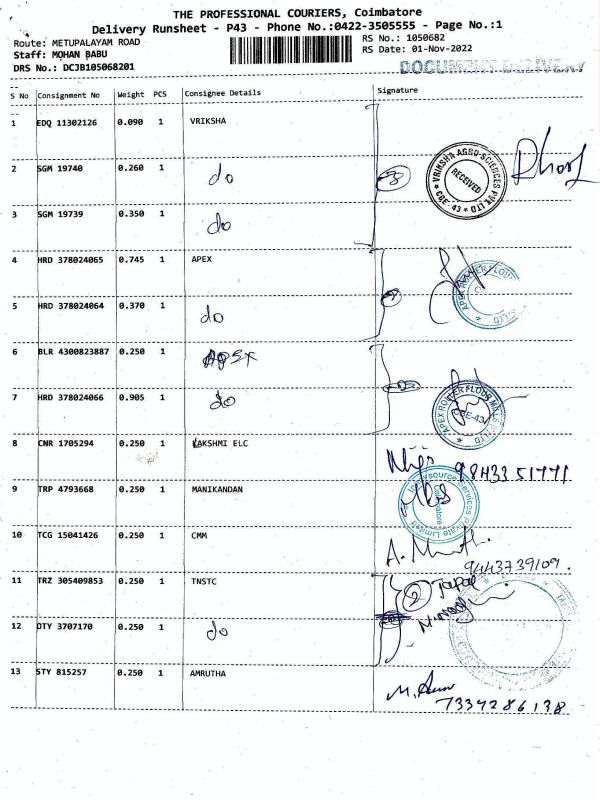 THE PROFESSIONAL COURIERS, Coimbatore
Delivery Runsheet - P43 - Phone No.:0422-3505555 - Page No.:1
Route: METUPALAYAM ROAD
RS No.: 1050682
Staff: MOHAN BABU
RS Date: 01-Nov-2022
DRS No.: DCJB105068201
DOCUMENT DELIVERY
S No Consignment No Weight PCS Consignee Details Signature
1 EDQ 11302126 0.090 1 VRIKSHA
2 SGM 19740 0.260 1 do
VRIKSHA AGRO-SCIENCES PVT LTD * CBE-43 *
RECEIVED
3 SGM 19739 0.350 1 do
4 HRD 378024065 0.745 1 APEX
5 HRD 378024064 0.370 1 do
6 BLR 4300823887 0.250 1 APEX
7 HRD 378024066 0.905 1 do
APEX ROLLER FLOUR MILLS PVT LTD
CBE-43
8 CNR 1705294 0.250 1 LAKSHMI ELC
98433 51771
9 TRP 4793668 0.250 1 MANIKANDAN
Source Services Private Limited
Coimbatore
10 TCG 15041426 0.250 1 CMM
9443739109.
11 TRZ 305409853 0.250 1 TNSTC
2 Tapal
12 OTY 3707170 0.250 1 do
13 STY 815257 0.250 1 AMRUTHA
7339286138